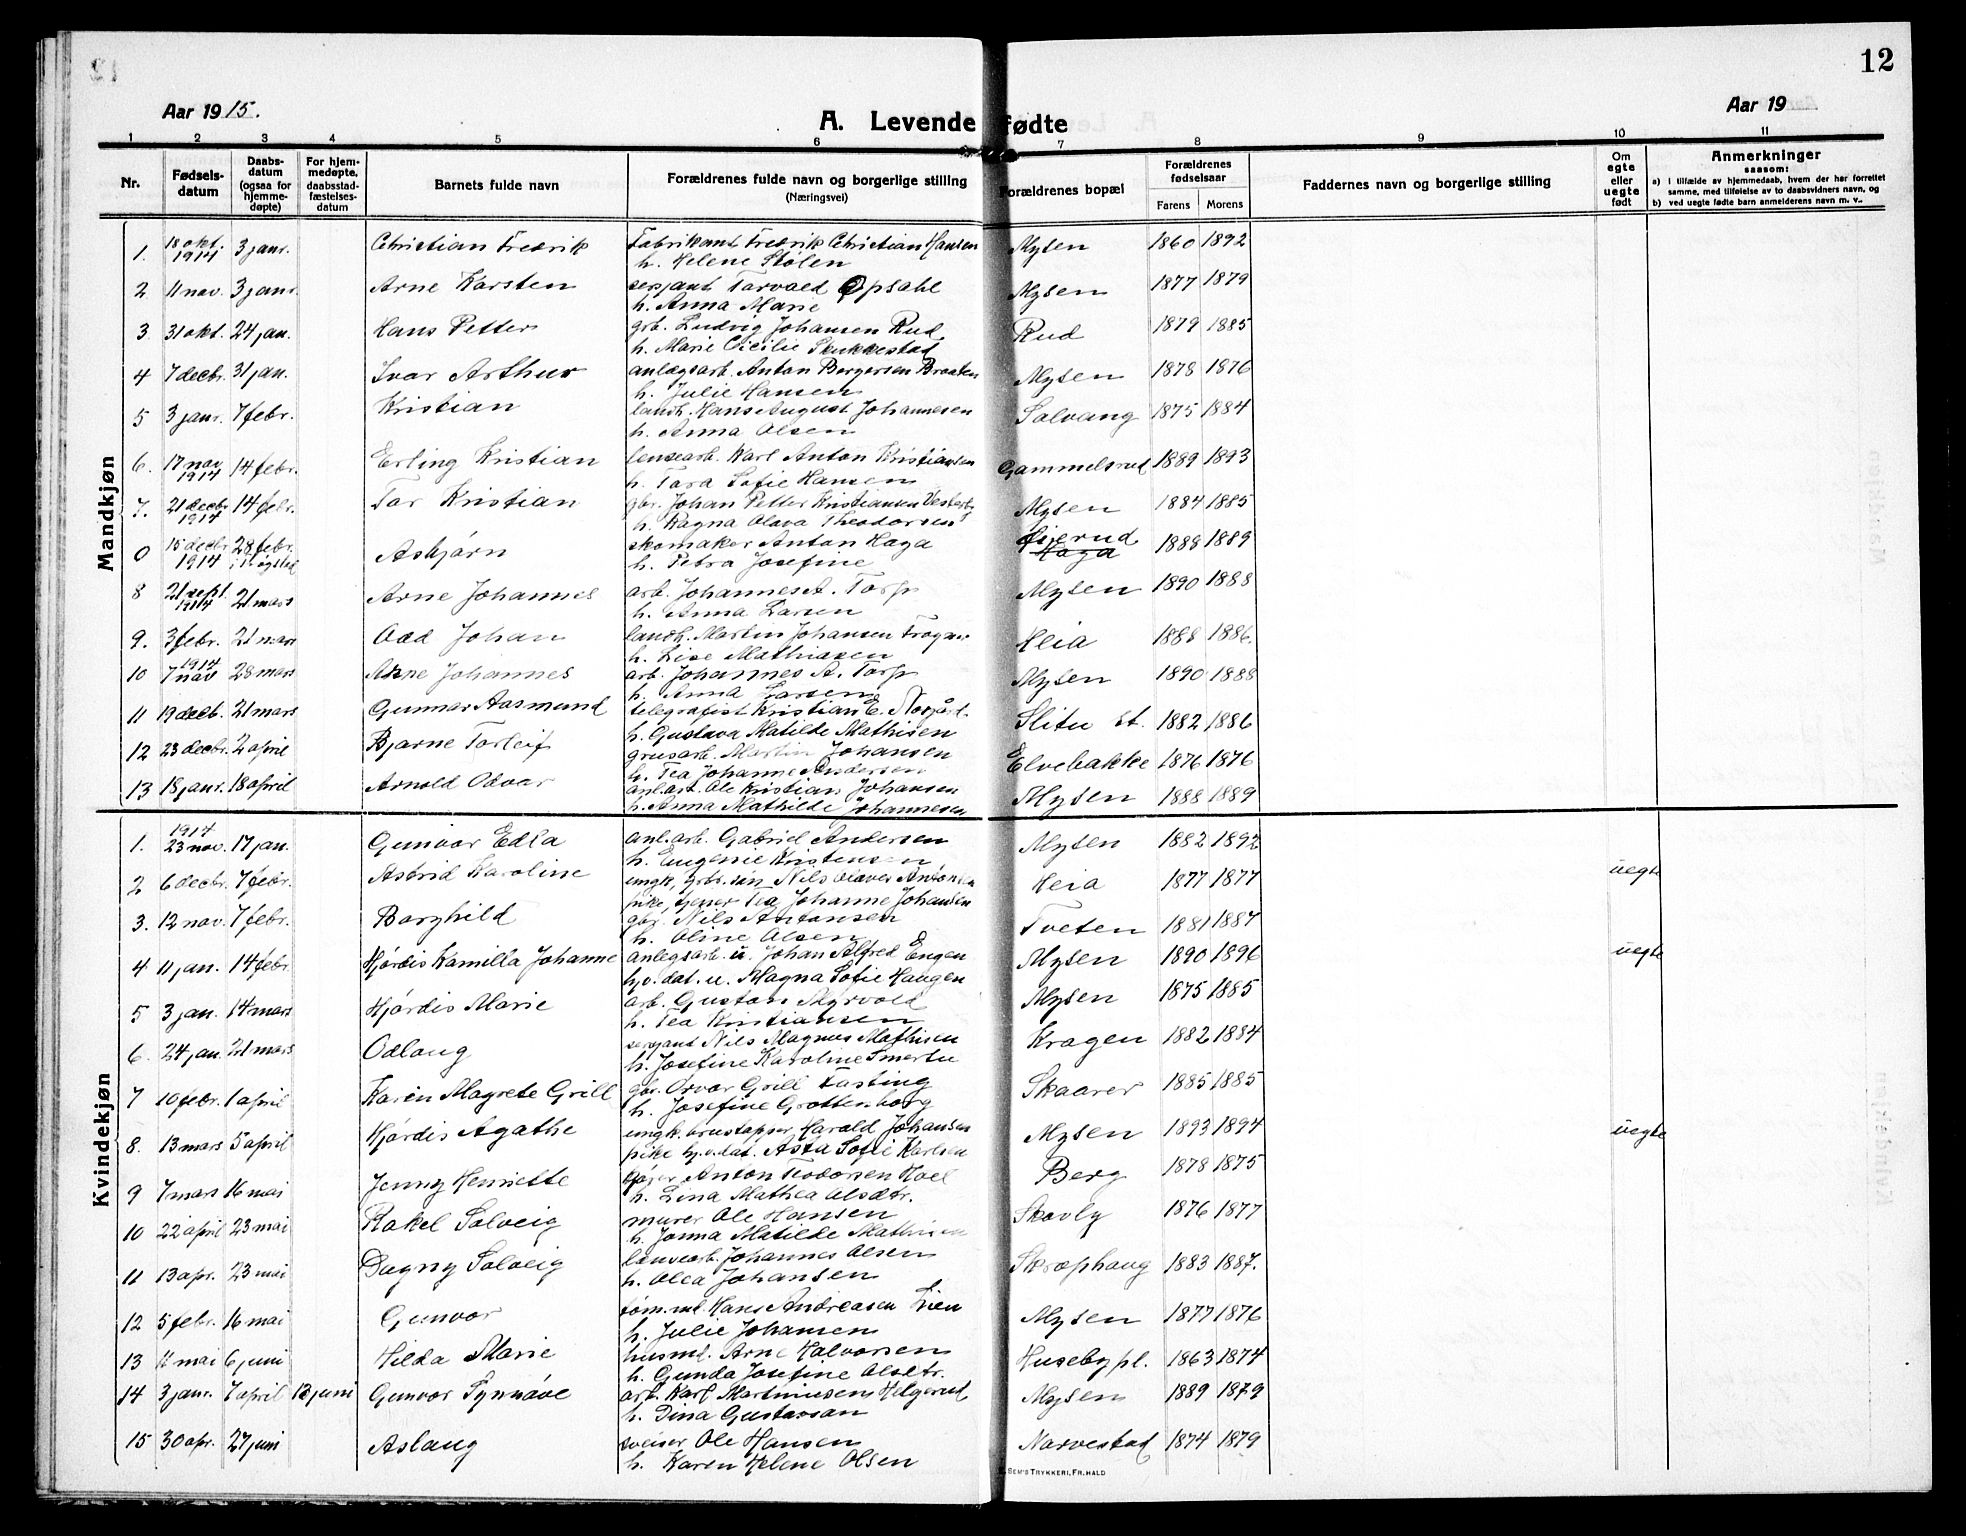 12
Aar 1915.
A. Levende fødte
Aar 19
1 2 3 4 5 6 7 8 9 10 11
Nr.
Fødsels-datum
Daabs-datum (ogsaa for hjemme-døpte)
For hjem-medøpte, daabsstad-fæstelses-datum
Barnets fulde navn
Forældrenes fulde navn og borgerlige stilling (Næringsvei)
Forældrenes bopæl
Forældrenes fødselsaar
Farens Morens
Faddernes navn og borgerlige stilling
Om egte eller uegte født
Anmerkninger saasom:
a) i tilfælde av hjemmedaab, hvem der har forrettet samme, med tilføielse av to daabsvidners navn, og
b) ved uegte fødte barn anmelderens navn m. v..
Mandkjøn
1. 18 okt. 1914 3 janr. Christian Fredrik Fabrikant Fredrik Christian Hansen Mysen 1860 1892
h. Helene Stølen
2 11 nov. 3 janr. Arne Karsten sersjant Torvald Opsahl Mysen 1877 1879
h. Anna Marie
3 31 okt. 24 jan. Hans Petter grb. Ludvig Johansen Rud Rud 1879 1885
h. Marie Cicilie Skukkestad
4 7 decbr. 31 jan. Ivar Arthur anlægsarb. Anton Borgersen Braaten Mysen 1878 1876
h. Julie Hansen
5 3 janr. 7 febr. Kristian landh. Hans August Johannesen Solvang 1875 1884
h. Anna Olsen
6. 17 nov 1914 14 febr. Erling Kristian lensearb. Karl Anton Kristiansen Gammelsrud 1889 1893
h. Tora Sofie Hansen
7. 21 decbr 1914 14 febr. Tor Kristian gbr. Johan Petter Kristiansen Mysen 1884 1885
h. Ragna Olava Theodorsen
0 15 decbr 1914 28 febr. Asbjørn skomaker Anton Haga Haga 1888 1889
h. Petra Josefine
8 21 sept. 1914 21 mars Arne Johannes arb. Johannes A. Torp Mysen 1890 1888
h. Anna Larsen
9. 3 febr. 21 mars Odd Johan landh. Martin Johansen Heia 1888 1886.
h. Lise Mathiasen
10 1914 7 nov 28 mars Arne Johannes arb. Johannes A. Torp Mysen 1890 1888
h. Anna Larsen
11 19 decb. 21 mars Gunnar Aasmund telegrafist Kristian E. Norgård. Slitu st. 1882 1886
h. Gustava Matilde Mathisen
12 23 decbr. 2 april Bjarne Torleif grusarb. Martin Johansen Elvebakke 1876 1876
h. Tea Johanne Andersen
13 18 janr. 18 april Arnold Odvar anl.arb. Ole Kristian Johansen Mysen 1888 1889
h. Anna Mathilde Johannesen
Kvindekjøn
1. 1914 23 nov. 17 jan. Gunvor Edla anl.arb. Gabriel Andersen Mysen 1882 1892
h. Eugenie Kristensen
2 6 decbr. 7 febr. Astrid Karoline ungk. grbr. søn Nils Olaves Antonsen Heia 1877 1877 uegte
pike, tjener Tea Johanne Johansen
3. 12 nov. 7 febr. Borghild gbr. Nils Antonsen Tveten 1881 1887
h. Oline Olsen
4 11 jan. 14 febr. Hjørdis Kamilla Johanne anlegsarb. u. Johan Alfred Engen Mysen 1890 1896 uegte
hjv. dat. u. Magna Sofie Haugen
5 3 jan. 14 mars Hjørdis Marie arb. Gustav Myrvold Mysen 1875 1885
h. Tea Kristiansen
6. 24 jan. 21 mars Odlaug sersjant Nils Magnus Mathisen Kragen 1882 1884
h. Josefine Karoline Smertu
7 10 febr. 1 april Karen Magrete Grill gbr. Orvar Grill Fasting Skaarer 1885 1885
h. Josefine Grottenborg
8. 13 mars 5 april Hjørdis Agathe ungk. brustapper Harald Johansen Mysen 1893 1894 uegte
pike hjv. dat. Asta Sofie Karlsen
9 7 mars 16 mai Jenny Henriette kjører Anton Teodorsen Hoel Berg 1878 1875
h. Lina Mathea Olsdtr.
10 22 april 23 mai Rakel Solveig murer Ole Hansen Skovly 1876 1877
h. Jonna Matilde Mathisen
11 13 apr. 23 mai Dagny Solveig lensearb. Johannes Olsen Skræphaug 1883 1887.
h. Olea Johansen
12 5 febr. 16 mai Gunvor tøm.ml. Hans Andreasen Lien Mysen 1877 1876
h. Julie Johansen
13 11 mai 6 juni Hilda Marie husmd. Arne Halvorsen Huseby pl. 1863 1874
h. Gunda Josefine Olsdtr.
14 3 janr. 7 april 13 juni Gunvor Synnøve arb. Karl Martiniusen Helgerud Mysen 1889 1879
h. Dina Gustavsan
15 30 apr. 27 juni Aslaug sveiser Ole Hansen Narvestad 1874 1879
h. Karen Helene Olsen
SEM'S TRYKKERI, FR.HALD